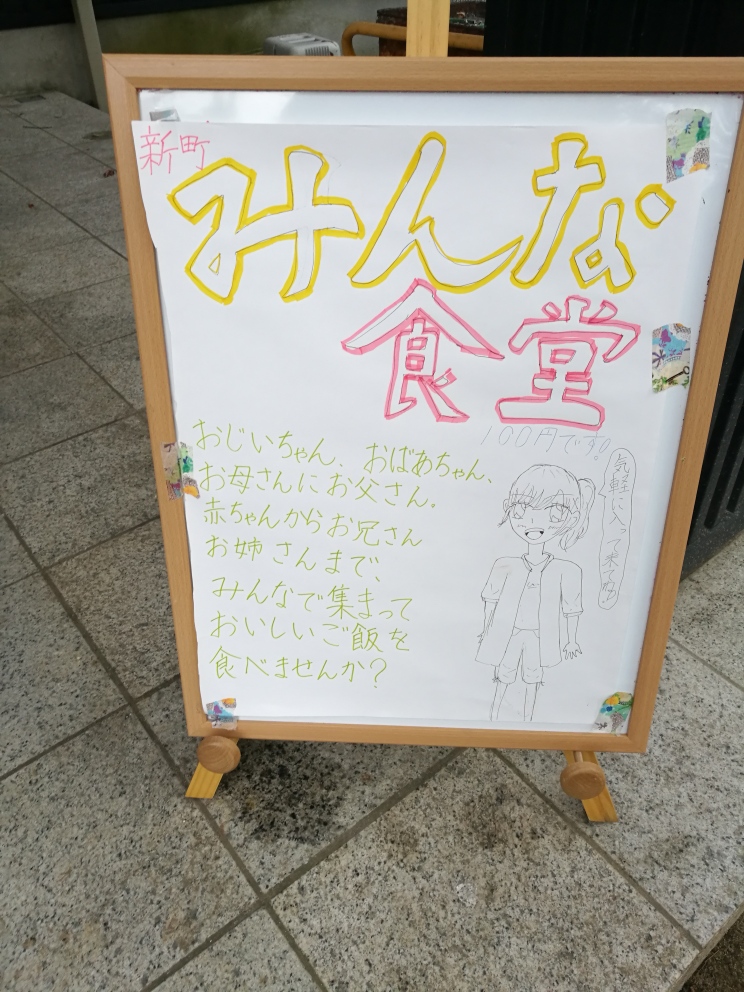 新町
みんな
食堂
100円です!
おじいちゃん、おばあちゃん、
お母さんにお父さん。
赤ちゃんからお兄さん
お姉さんまで、
みんなで集まって
おいしいご飯を
食べませんか?
気軽に入って来てね